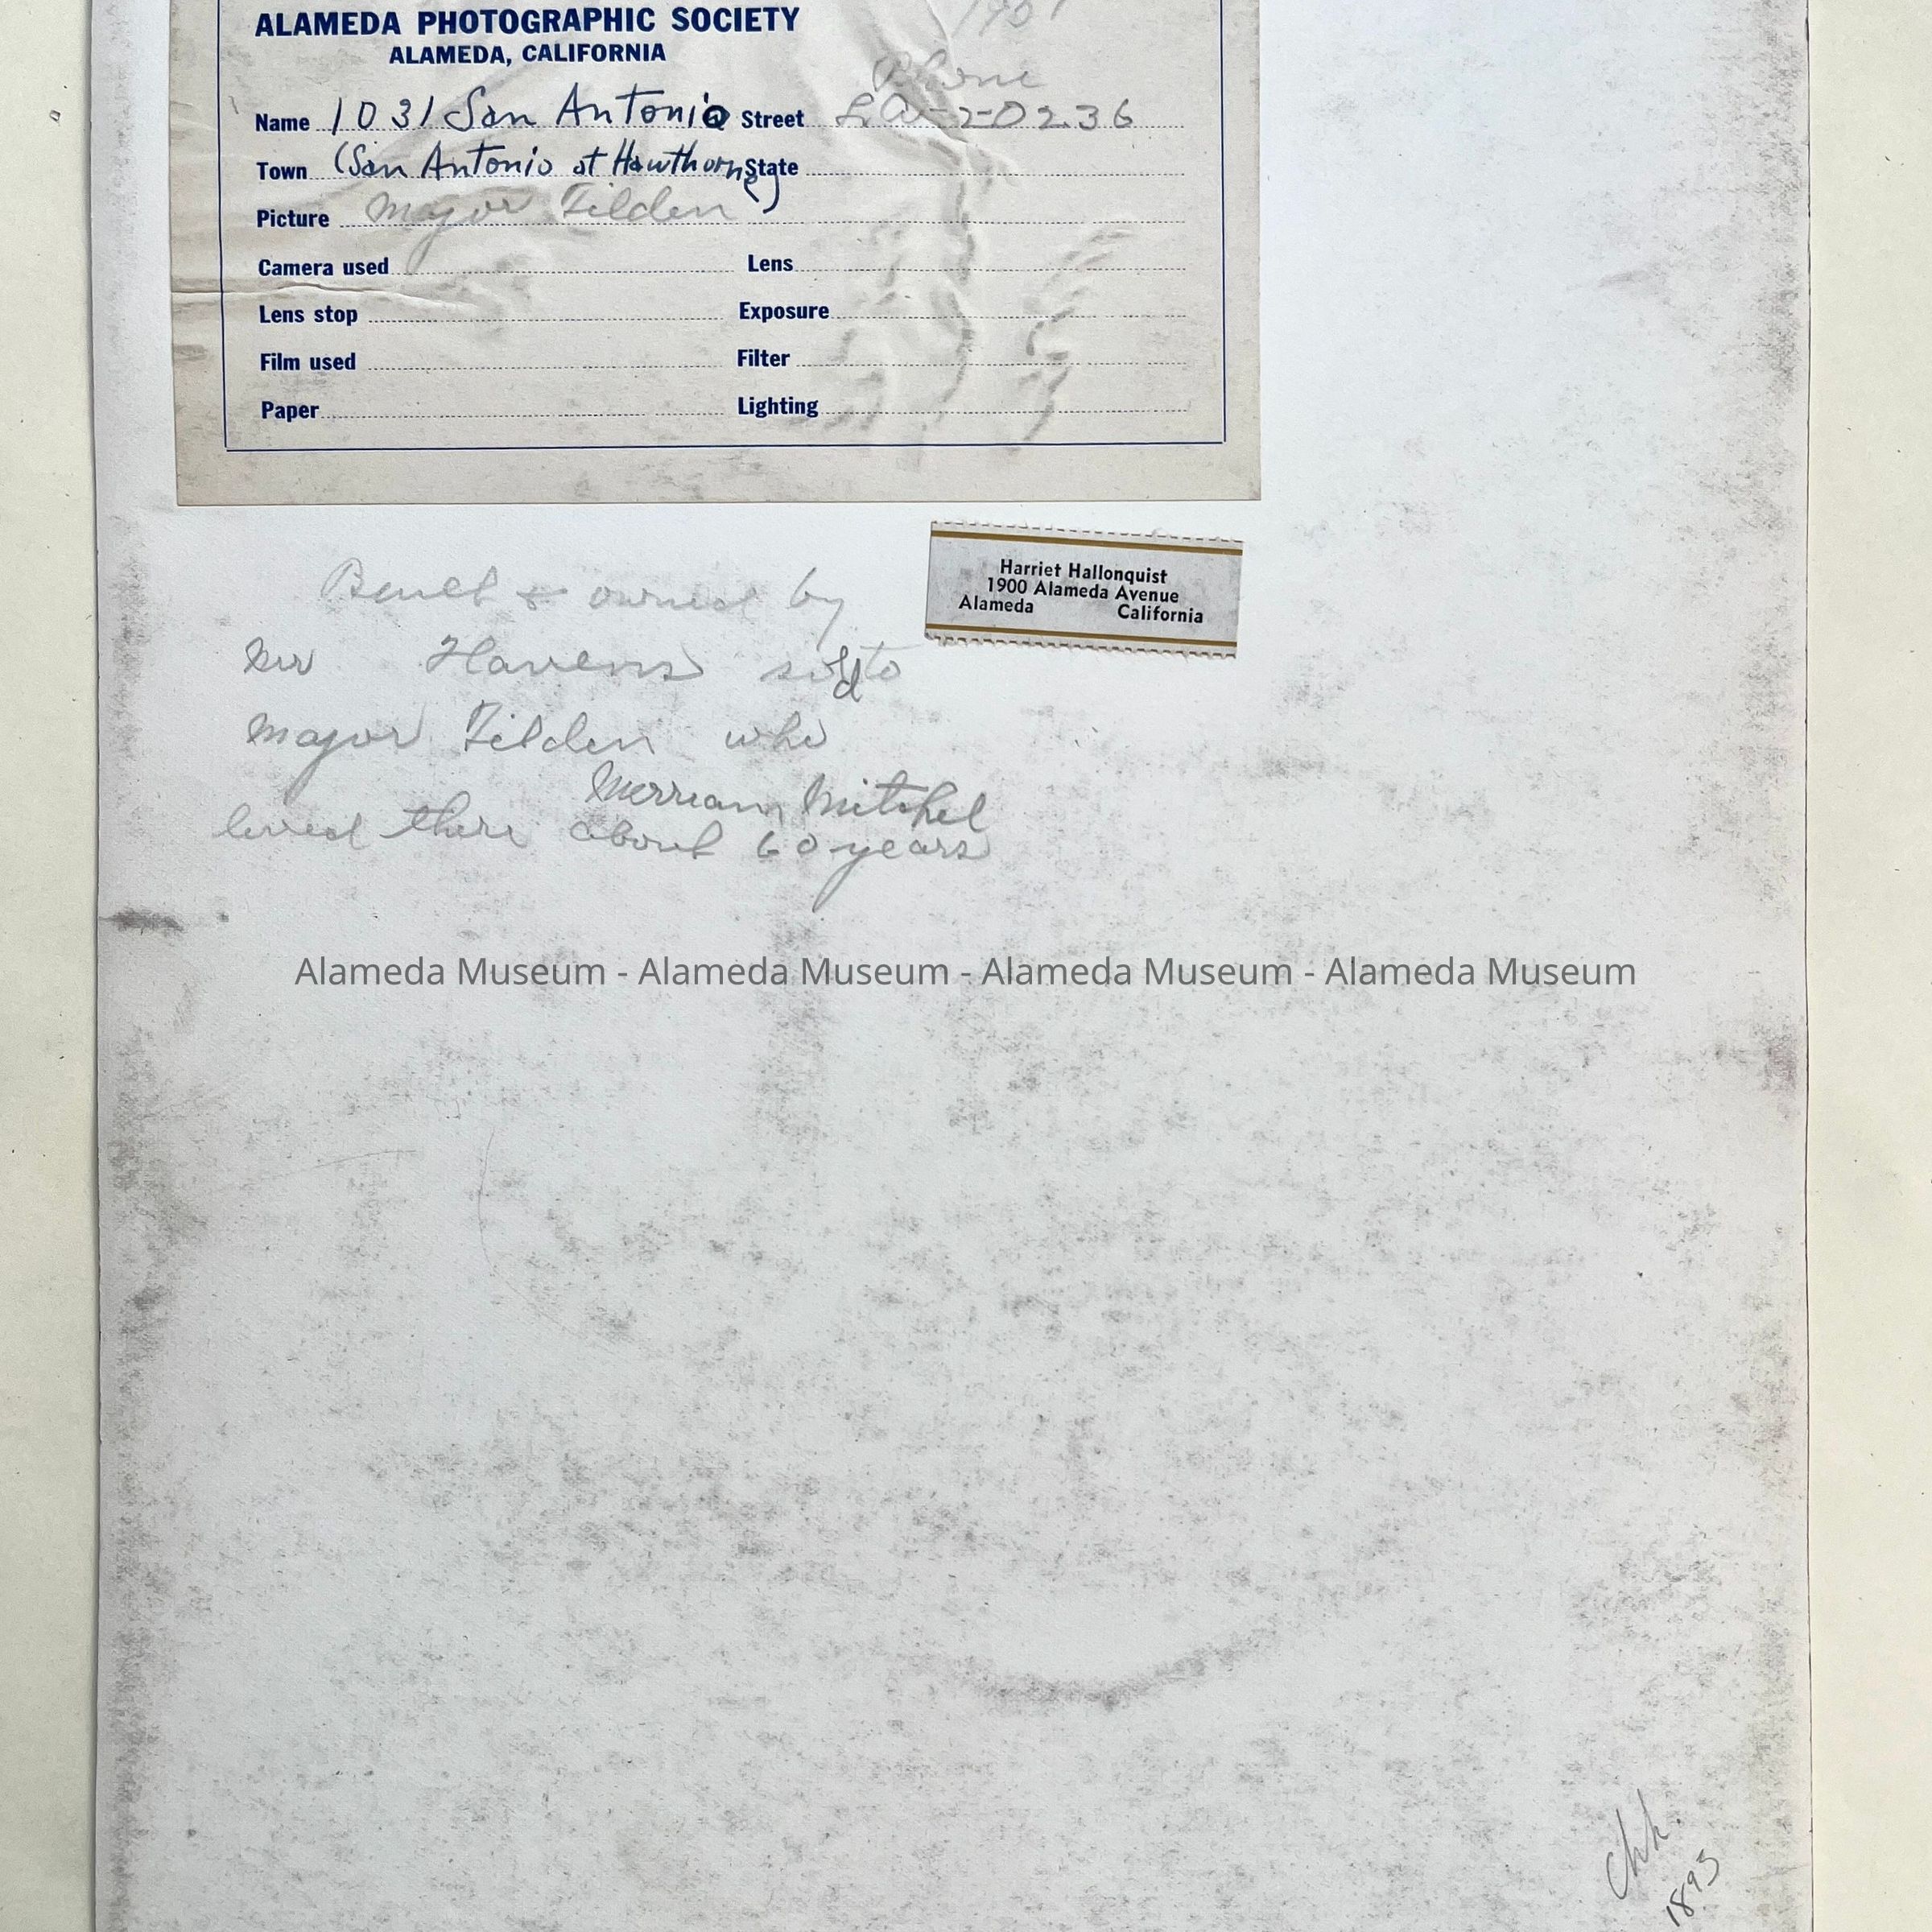 ALAMEDA PHOTOGRAPHIC SOCIETY
ALAMEDA, CALIFORNIA
Phone
Name 1031 San Antonio Street LA-2-0236
Town (San Antonio at Hawthorne) State
Picture Major Tilden
Camera used Lens
Lens stop Exposure
Film used Filter
Paper Lighting
Harriet Hallonquist
1900 Alameda Avenue
Alameda California
Built & owned by
Mr Havens sold to
Major Tilden who
Merriam Mitchel
lived there about 60 years
Alameda Museum - Alameda Museum - Alameda Museum - Alameda Museum
1893